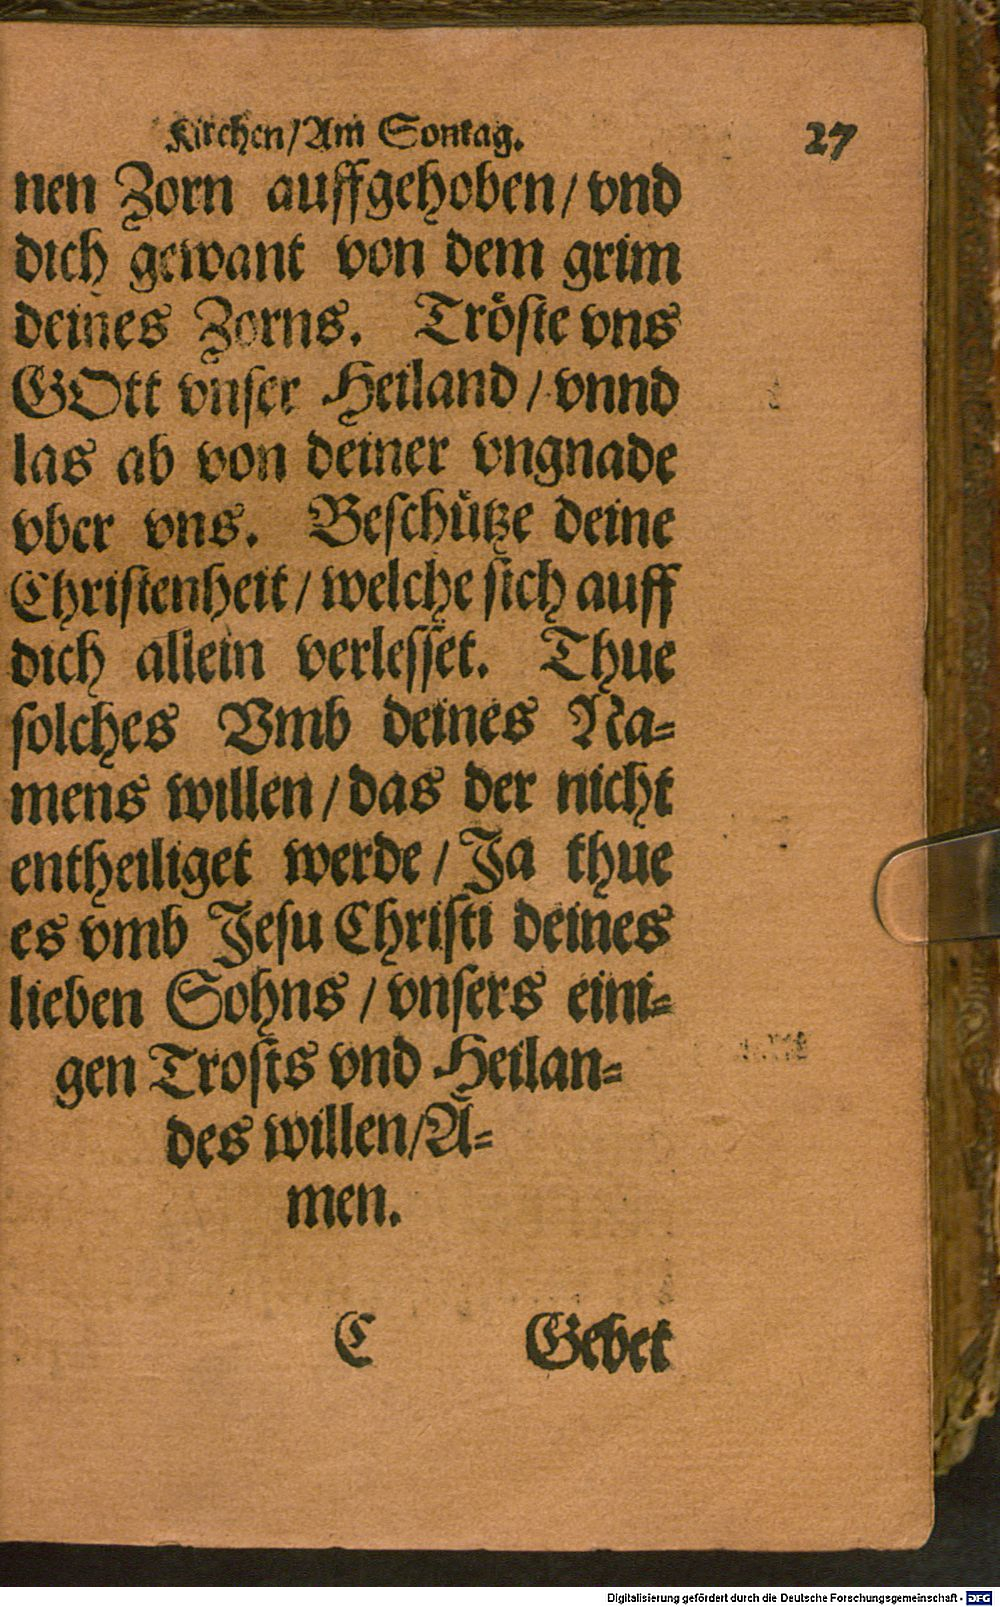 Kirchen/Am Sontag.
27
nen Zorn auffgehoben/vnd
dich gewant von dem grim
deines Zorns. Tröste vns
GOtt vnser Heiland/vnnd
las ab von deiner vngnade
vber vns. Beschütze deine
Christenheit/welche sich auff
dich allein verlesset. Thue
solches Vmb deines Na=
mens willen/das der nicht
entheiliget werde/Ja thue
es vmb Jesu Christi deines
lieben Sohns/vnsers eini=
gen Trosts vnd Heilan=
des willen/A=
men.
C Gebet
Digitalisierung gefördert durch die Deutsche Forschungsgemeinschaft - DFG